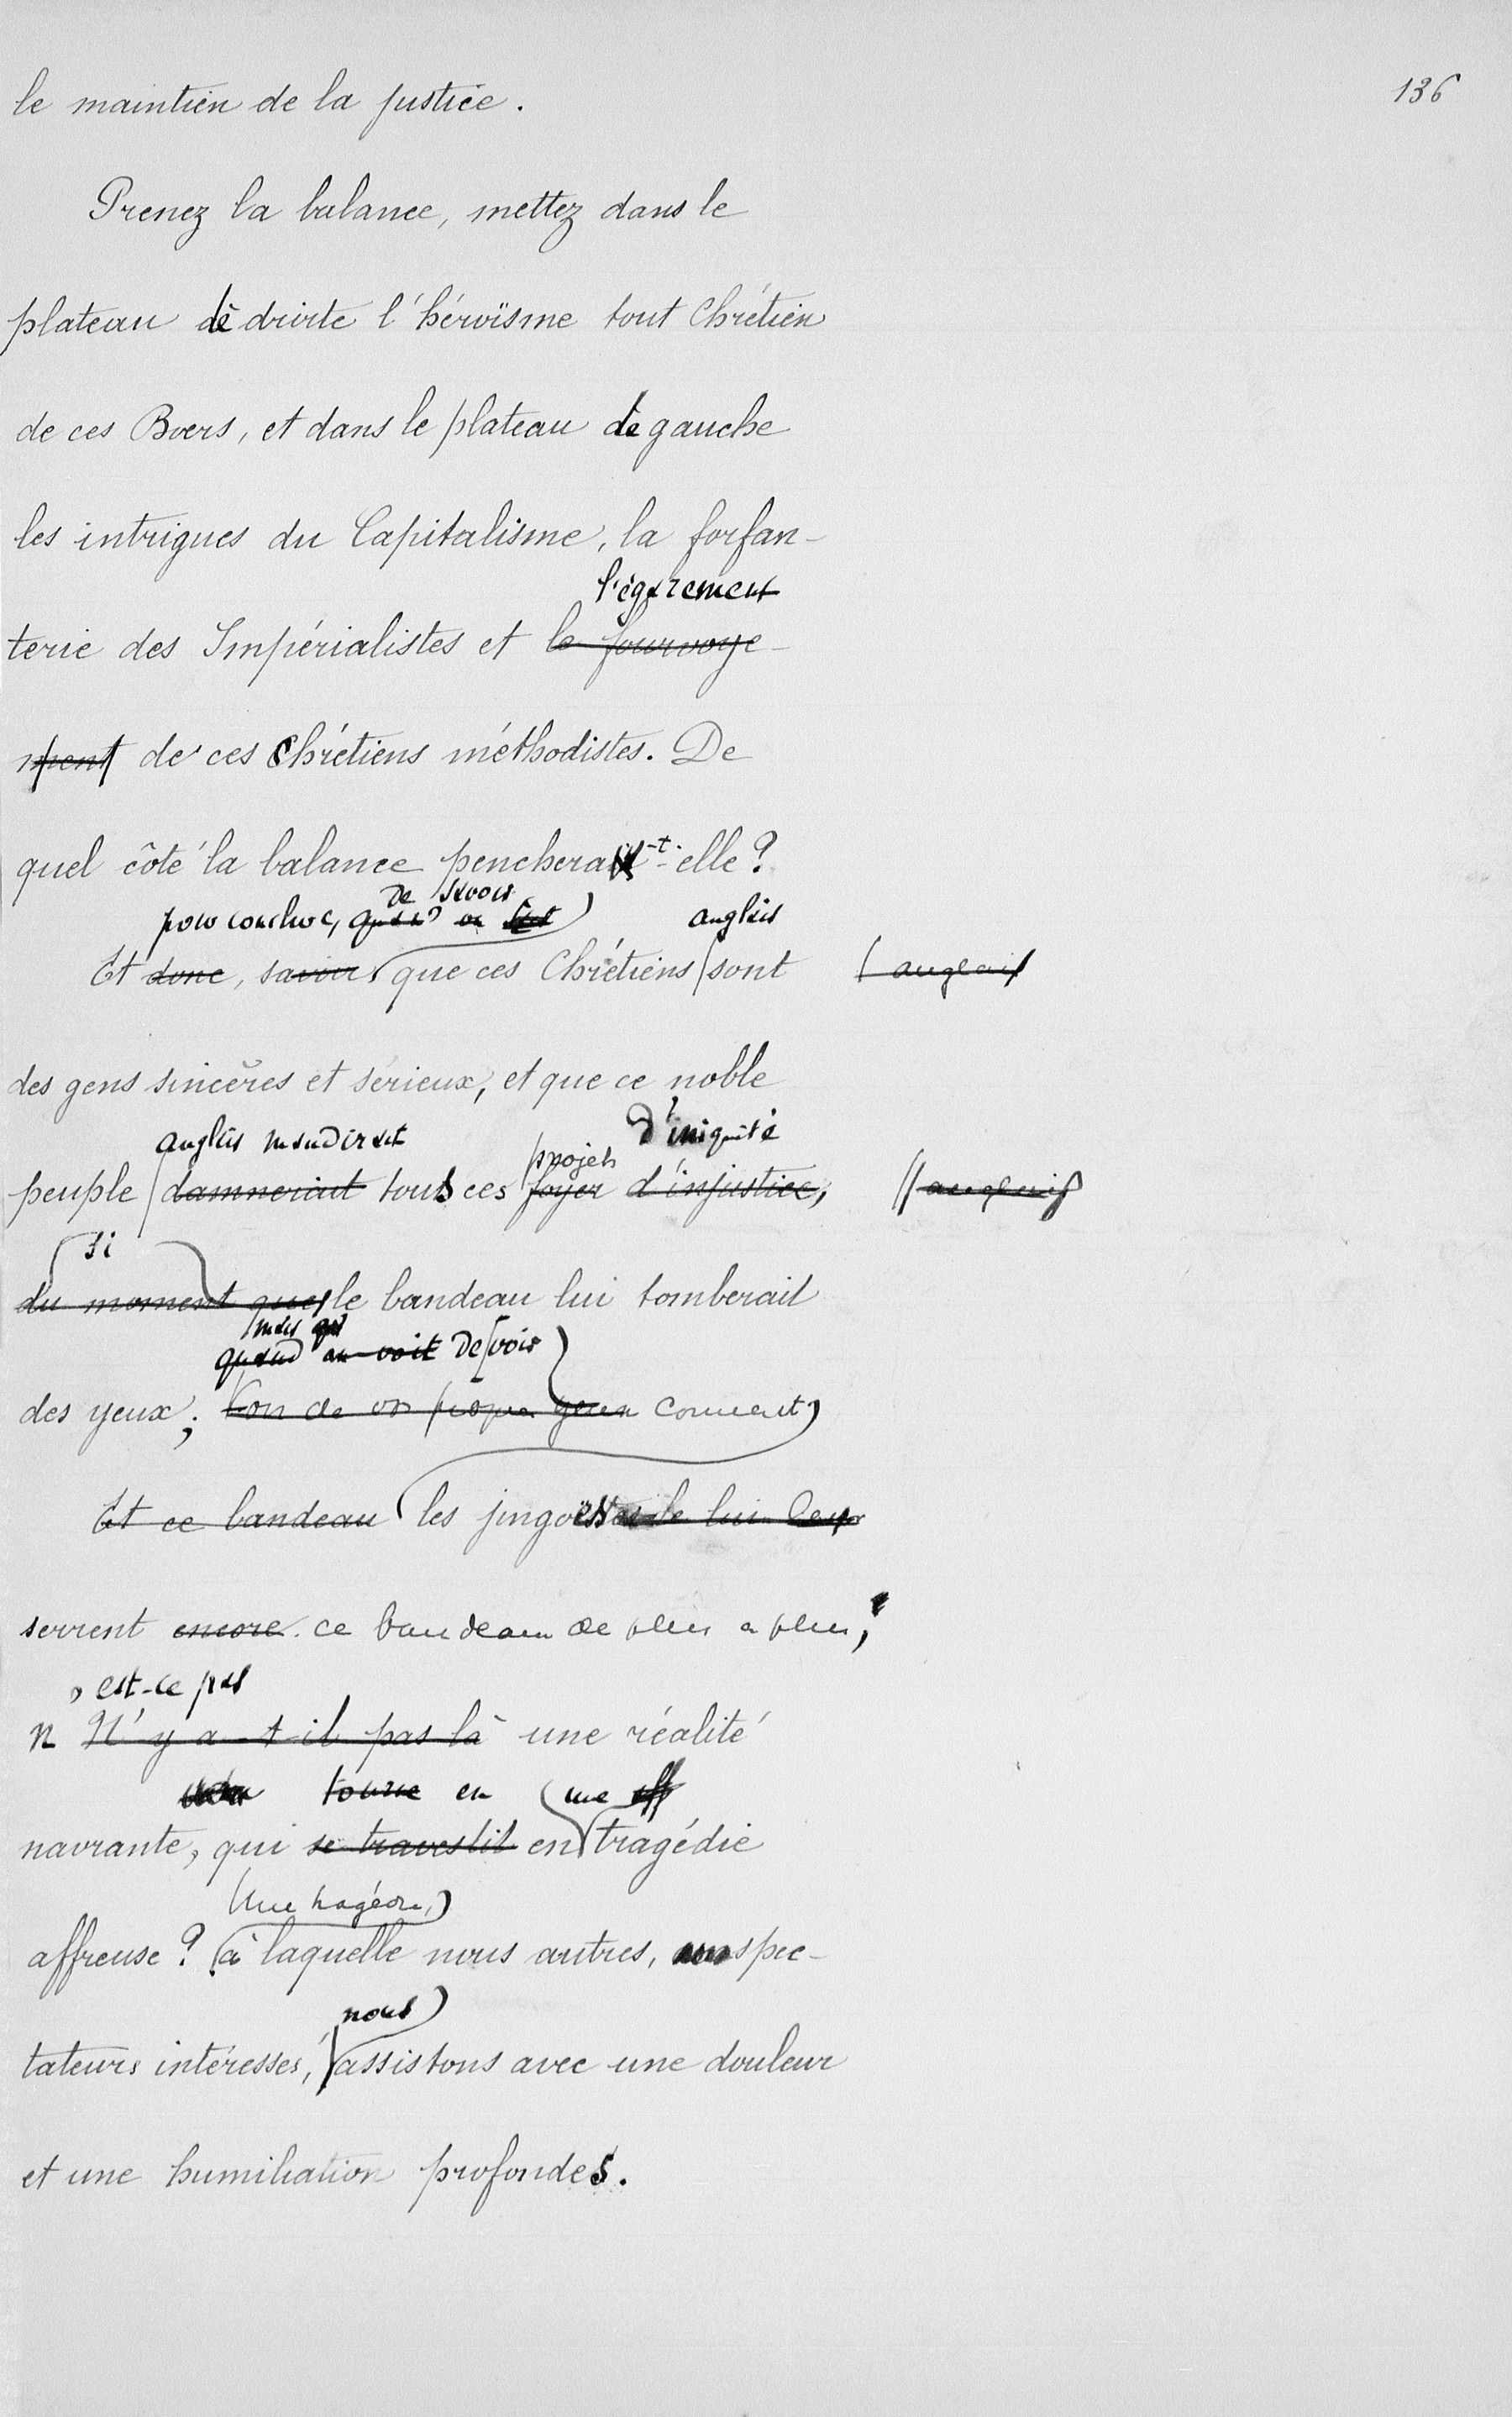 136
le maintien de la justice.
Prenez la balance, mettez dans le
plateau de droite l'héroïsme tout Chrétien
de ces Boers, et dans le plateau de gauche
les intrigues du Capitalisme, la forfan-
l'égarement
terie des Impérialistes et le fourvoye-
ment de ces Chrétiens méthodistes. De
quel côté la balance penchera-t-elle?
de savoir
pour conclure, quand on sait anglais
Et donc, savoir que ces Chrétiens sont anglais
des gens sincères et sérieux, et que ce noble
anglais maudirait projets d'iniquité
peuple damnerait tous ces foyer d'injustice, anglais
si
du moment que le bandeau lui tomberait
mais
quand on voit de voir
des yeux; yeux comment
Et ce bandeau les jingoïstes le lui
serrent encore ce bandeau de plus en plus,
est-ce pas
n N'y a-t-il pas là une réalité
tourne en une
navrante, qui se travestit en tragédie
Une tragédie,
affreuse? à laquelle nous autres, spec-
nous
tateurs intéressés, assistons avec une douleur
et une humiliation profondes.